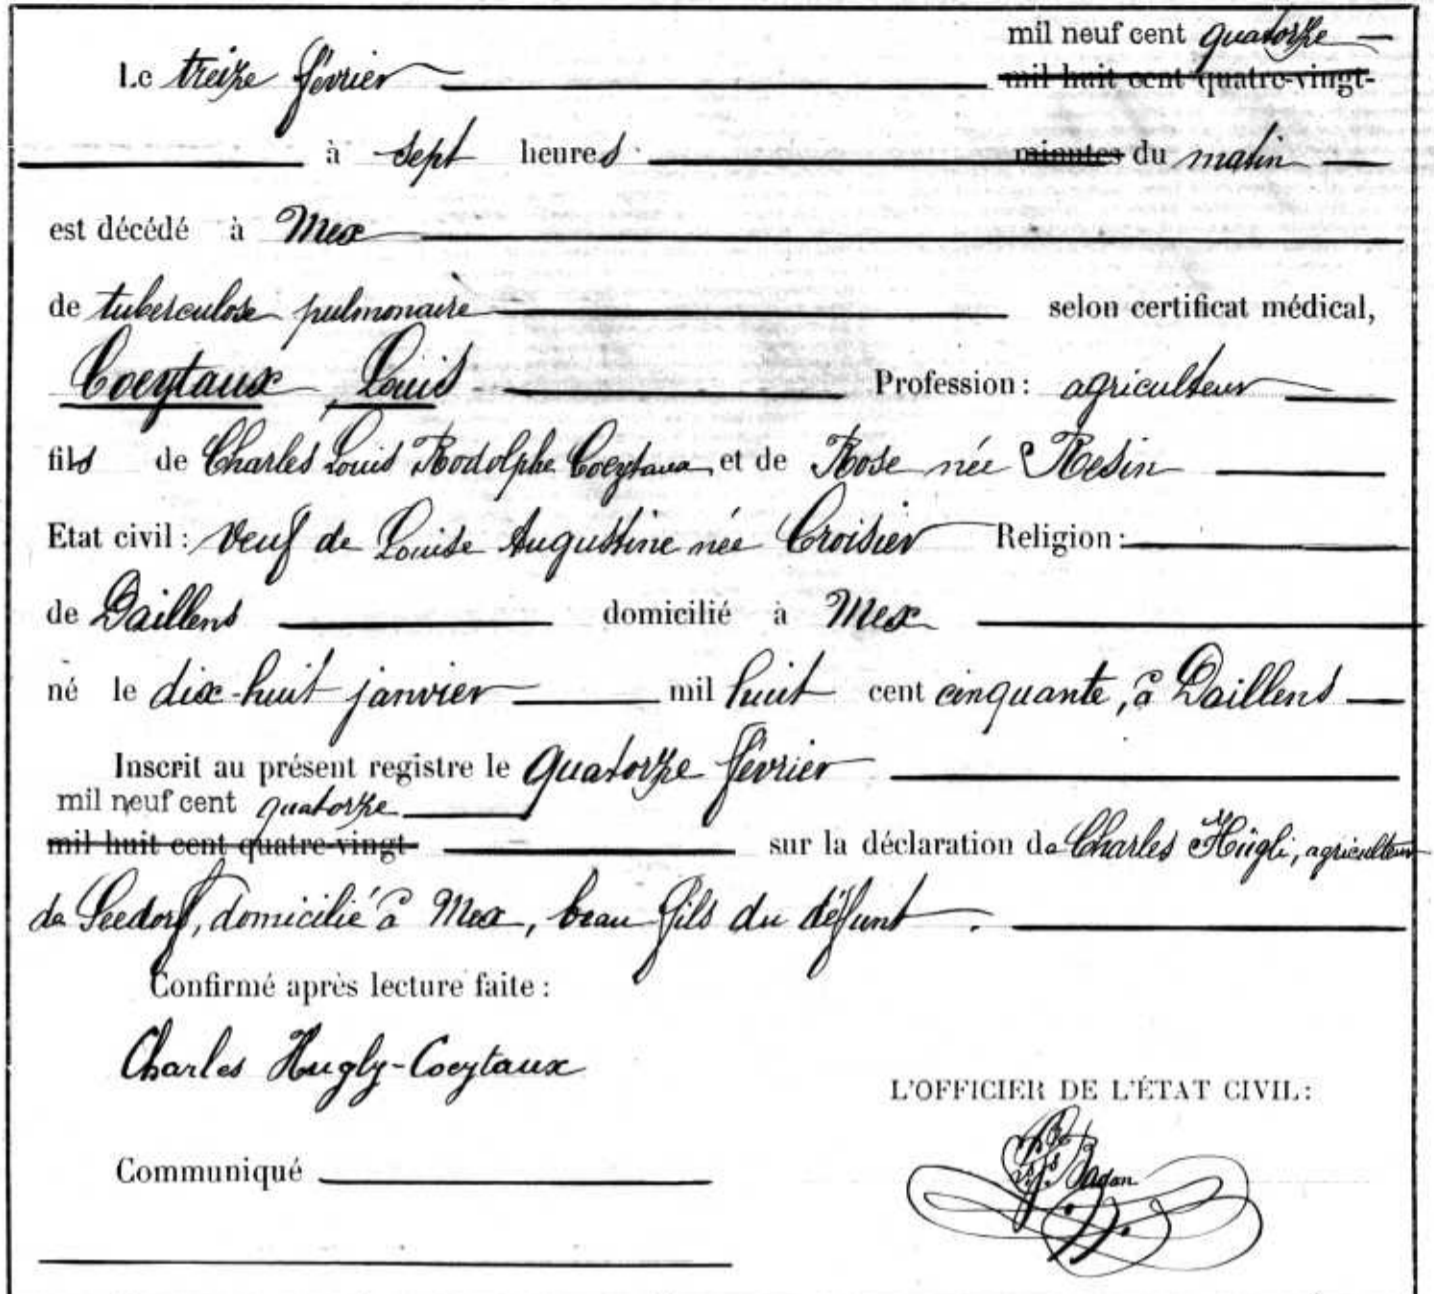 mil neuf cent quatorze
Le treize février mil huit cent quatre-vingt-
à sept heures minutes du matin
est décédé à Mex
de tuberculose pulmonaire selon certificat médical,
Cocytaux, Louis Profession: agriculteur
fils de Charles Louis Rodolphe Cocytaux et de Rose née Resin
Etat civil: veuf de Louise Augustine née Croisier Religion:
de Daillens domicilié à Mex
né le dix-huit janvier mil huit cent cinquante, à Daillens
Inscrit au présent registre le quatorze février
mil neuf cent quatorze
mil huit cent quatre-vingt- sur la déclaration de Charles Hügli, agriculteur
de Seedorf, domicilié à Mex, beau fils du défunt.
Confirmé après lecture faite:
Charles Hugly-Cocytaux
L'OFFICIER DE L'ÉTAT CIVIL:
Communiqué